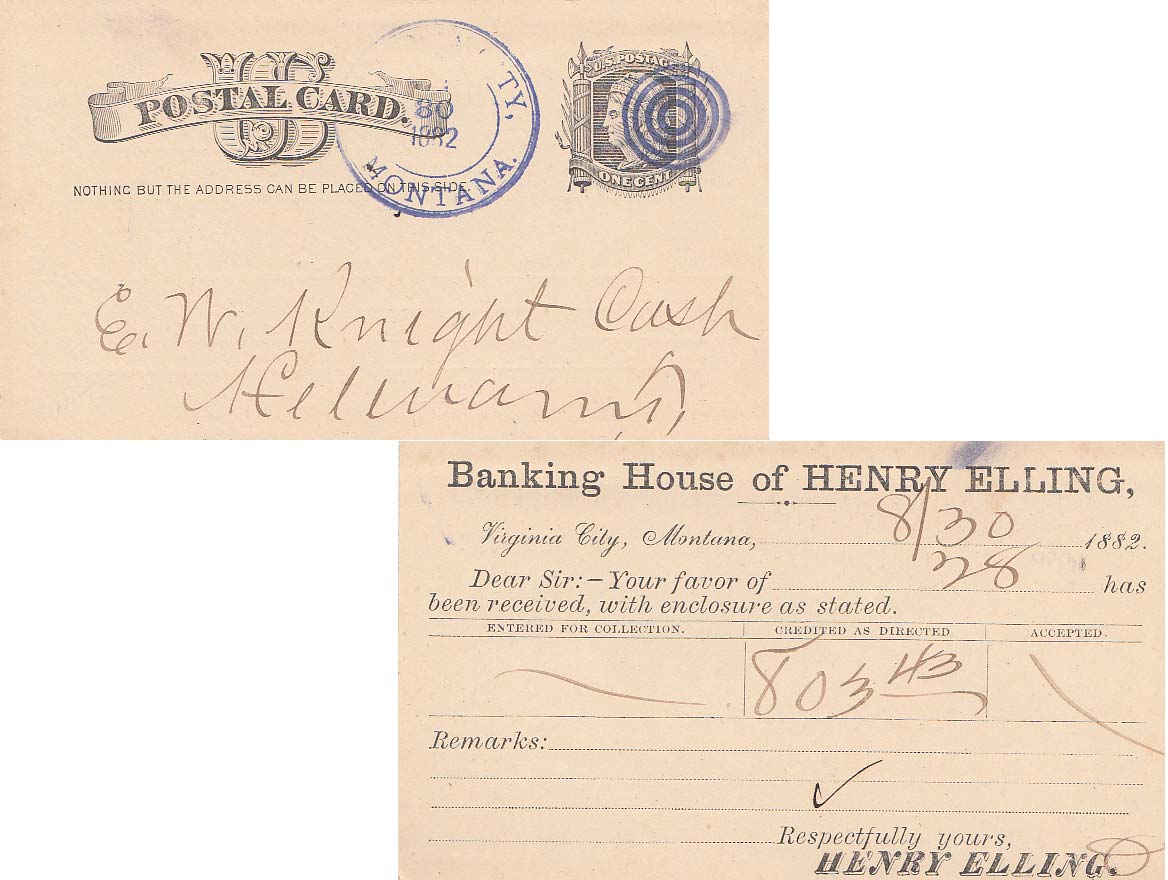 U S
POSTAL CARD.
NOTHING BUT THE ADDRESS CAN BE PLACED ON THIS SIDE.
TY,
30
1882
MONTANA.
U.S. POSTAGE
ONE CENT
E. W. Knight Cash
Helena M.T,
Banking House of HENRY ELLING,
Virginia City, Montana, 8/30 1882.
Dear Sir:—Your favor of 28 has
been received, with enclosure as stated.
ENTERED FOR COLLECTION. CREDITED AS DIRECTED ACCEPTED.
803 43
Remarks:
Respectfully yours,
HENRY ELLING.